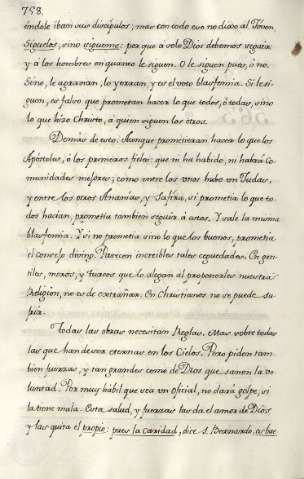 758.
iendole iban sus discipulos; mas con todo eso no dixo al Joven,
Siguelos, sino sigueme: por que a solo Dios debemos seguir
y a los hombres en quanto le siguen. O le siguen pues, ò no.
Sino, le agravian, lo yerran, y es el voto blasfemia. Si le si-
guen, es falso que prometan hacer lo que todos, ò todas, sino
lo que hizo Christo, à quien siguen los otros.
Demàs de esto. Aunque prometieran hacer lo que los
Apòstoles, ò los primeros fieles: que ni hà habido, ni habrà Co-
munidades mejores; como entre los unos hubo un Judas,
y entre los otros Ananias, y Safira, si prometia lo que to-
dos hacian, prometia tambien seguir à estos. Y sale la misma
blasfemia. Y si no prometia sino lo que los buenos, prometia
el consejo divino. Parecen increibles tales ceguedades. En gen-
tiles, moros, y turcos que lo alegan al protextarles nuestra
Religion, no es de extrañar. En Christianos no se puede su-
frir.
Todas las obras necesitan Reglas. Mas sobre todas
las que han de ser eternas en los Cielos. Pero piden tam-
bien fuerzas, y tan grandes como de Dios que sanen la vo-
luntad. Por muy hàbil que sea un oficial, no darà golpe, si
la tiene mala. Esta salud, y fuerzas las da el amor de Dios,
y las quita el propio: pues la caridad, dice S. Bernardo,